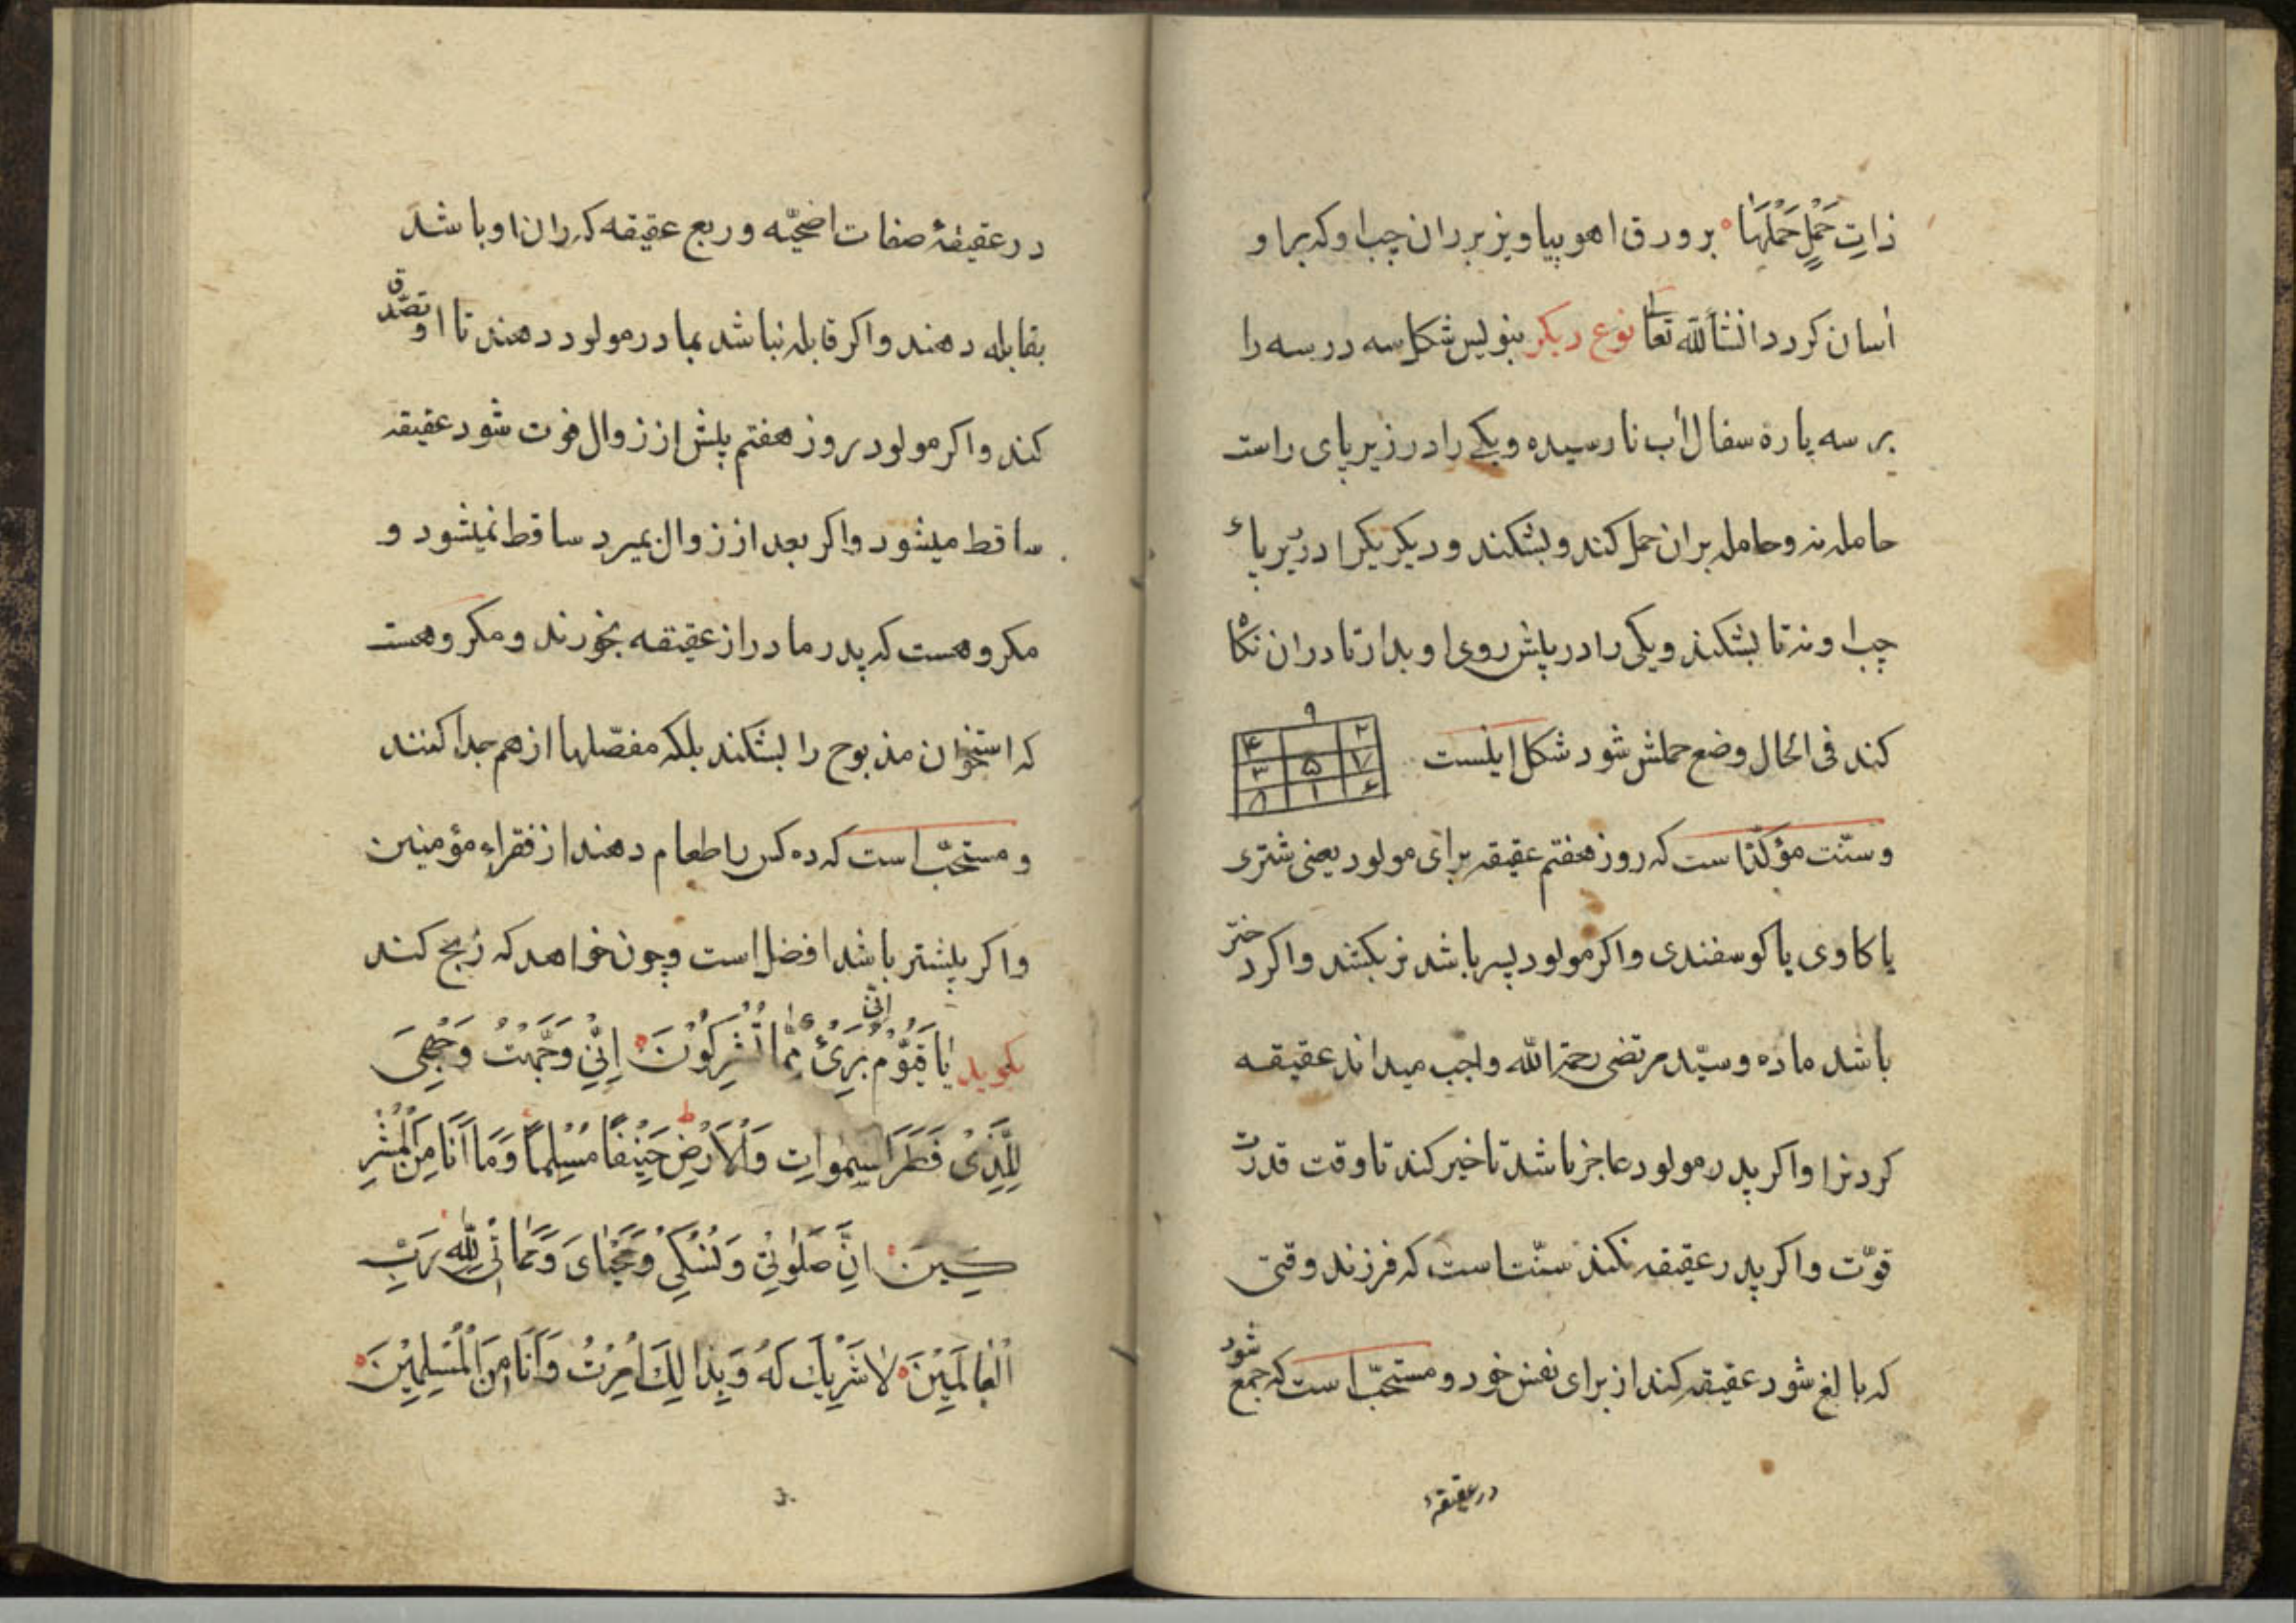 ذاتِ حَمْلٍ حَمْلَهَا بر ورق اهو بیاویز بر ران چب او که برا و
اسان کردد انشأالله تعا نوع دیکر بنویس شکل سه در سه را
بر سه پارهٔ سفال اب نا رسیده و یکے را در زیر پای راست
حامله نه و حامله بران حمل کند و بشکند و دیکر یکرا در زیر پاء
چب او نه تا بشکند و یکی را در پیش روی او بدار تا دران نکاه
کند فی الحال وضع حملش شود شکل اینست
۴ ۹ ۲
۳ ۵ ۷
۸ ۱ ۶
و سنّت مؤکّد است که روز هفتم عقیقه برای مولود یعنی شتری
یا کاوی یا کوسفندی و اکر مولود پسر باشد نر بکشند و اکر دختر
باشد ماده و سیّد مرتضی رحمة الله واجب میداند عقیقه
کردنرا و اکر پدر مولود عاجز باشد تاخیر کند تا وقت قدرت
قوّت و اکر پدر عقیقه نکند سنّت است که فرزند وقتی
که بالغ شود عقیقه کند از برای نفس خود و مستحبّ است که جمع شود
در عقیقهٔ
در عقیقهٔ صفات اضحیّه و ربع عقیقه که ران او باشد
بقابله دهند و اکر قابله نباشد بمادر مولود دهند تا او تصدّق
کند و اکر مولود روز هفتم پیش از زوال فوت شود عقیقه
ساقط میشود و اکر بعد از زوال بمیرد ساقط نمیشود و
مکروهست که پدر مادر از عقیقه بخورند و مکروهست
که استخوان مذبوح را بشکند بلکه مفصّلها از هم جدا کنند
و مستحبّ است که ده کس را طعام دهند از فقراء مؤمنین
و اکر پیشتر باشد افضل است و چون خواهد که ذبح کند
بکوید یَا قَوْمُ اِنّی بَرِیءٌ مِمَّا تُشْرِکُوْنَ اِنِّیْ وَجَّهْتُ وَجْهِیَ
لِلَّذِیْ فَطَرَ السَّمٰواتِ وَالْاَرْضَ حَنِیْفًا مُسْلِمًا وَمَا اَنَا مِنَ الْمُشْرِ
کِینَ اِنَّ صَلٰوتِیْ وَنُسُکِیْ وَمَحْیٰایَ وَمَمَاتِیْ لِلّٰهِ رَبِّ
الْعَالَمِیْنَ لَا شَرِیْكَ لَهُ وَبِذَا لِكَ اُمِرْتُ وَاَنَا مِنَ الْمُسْلِمِیْنَ